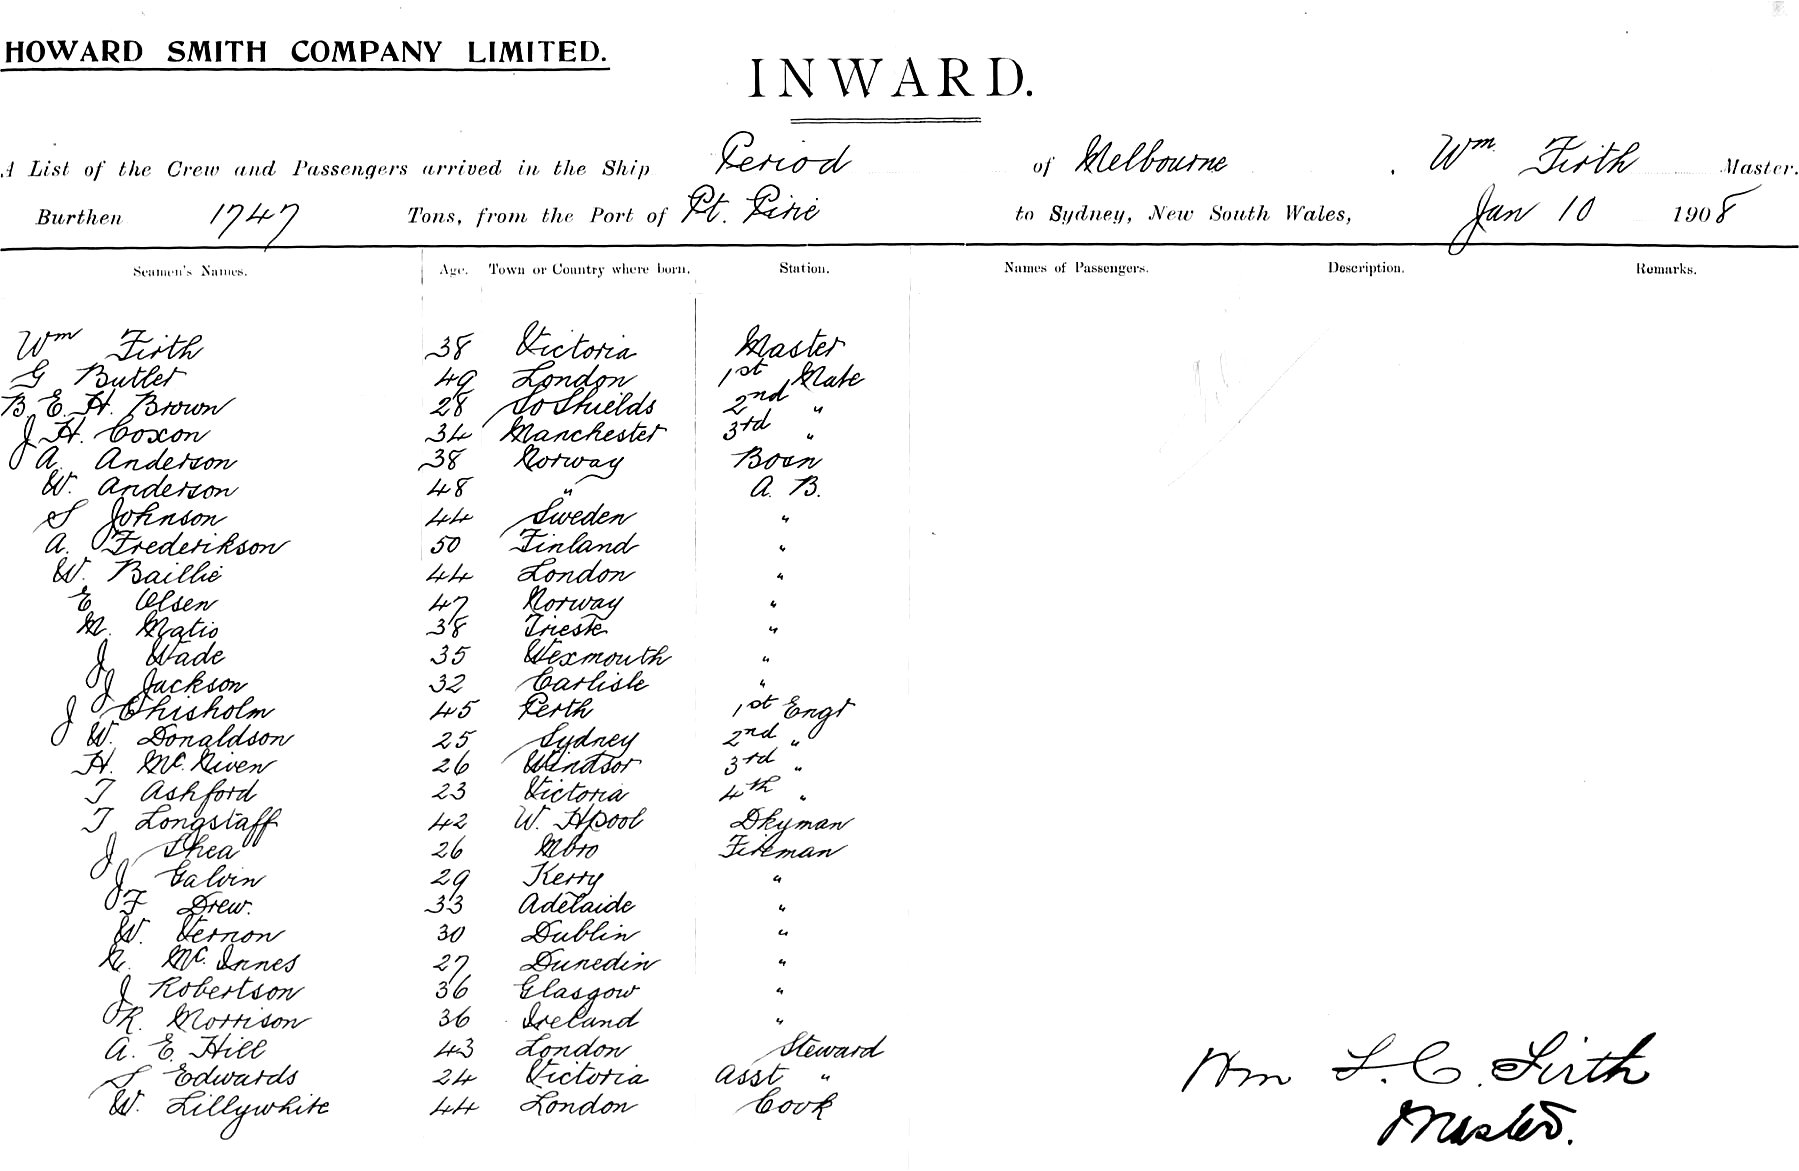 HOWARD SMITH COMPANY LIMITED.
INWARD.
A List of the Crew and Passengers arrived in the Ship Period of Melbourne . Wm Firth Master.
Burthen 1747 Tons, from the Port of Pt. Pirie to Sydney, New South Wales, Jan 10 1908
Seamen's Names. Age. Town or Country where born. Station. Names of Passengers. Description. Remarks.
Wm Firth 38 Victoria Master
G Butler 49 London 1st Mate
B E. H. Brown 28 So Shields 2nd "
J H. Coxon 34 Manchester 3rd "
A Anderson 38 Norway Bosn
W. Anderson 48 " A. B.
S Johnson 44 Sweden "
A. Frederikson 50 Finland "
W. Baillie 44 London "
E Olsen 47 Norway "
M. Matio 38 Trieste "
J Wade 35 Wexmouth "
J Jackson 32 Carlisle "
J Chisholm 45 Perth 1st Engr
W. Donaldson 25 Sydney 2nd "
H. Mc.Niven 26 Windsor 3rd "
T Ashford 23 Victoria 4th "
T Longstaff 42 W. Hpool Dkyman
J Shea 26 Mbro Fireman
J Galvin 29 Kerry "
F Drew. 33 Adelaide "
W. Vernon 30 Dublin "
N. Mc.Innes 27 Dunedin "
J Robertson 36 Glasgow "
R. Morrison 36 Ireland "
A. E. Hill 43 London Steward
S Edwards 24 Victoria Asst "
W. Lillywhite 44 London Cook
Wm L. C. Firth
Master.